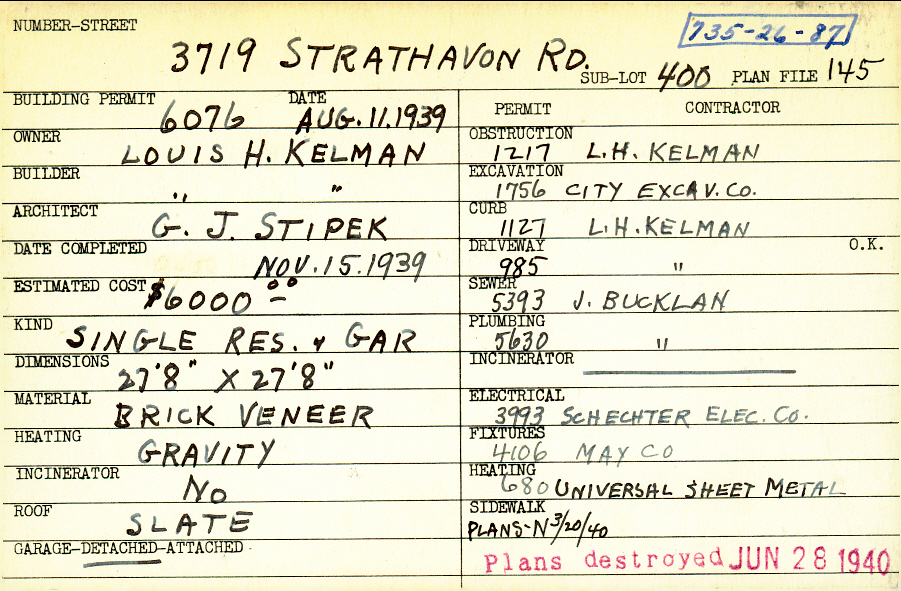 NUMBER-STREET
735-26-87
3719 STRATHAVON RD.
SUB-LOT 400 PLAN FILE 145
BUILDING PERMIT 6076 DATE AUG. 11. 1939
OWNER LOUIS H. KELMAN
BUILDER " "
ARCHITECT G. J. STIPEK
DATE COMPLETED NOV. 15. 1939
ESTIMATED COST $6000 00
KIND SINGLE RES. & GAR
DIMENSIONS 27'8" X 27'8"
MATERIAL BRICK VENEER
HEATING GRAVITY
INCINERATOR NO
ROOF SLATE
GARAGE-DETACHED-ATTACHED
PERMIT CONTRACTOR
OBSTRUCTION
1217 L.H. KELMAN
EXCAVATION
1756 CITY EXCAV. CO.
CURB
1127 L.H. KELMAN
DRIVEWAY O.K.
985 "
SEWER
5393 J. BUCKLAN
PLUMBING
5630 "
INCINERATOR
ELECTRICAL
3993 SCHECHTER ELEC. CO.
FIXTURES
4106 MAY CO
HEATING
680 UNIVERSAL SHEET METAL
SIDEWALK
PLANS-N 3/20/40
Plans destroyed JUN 28 1940